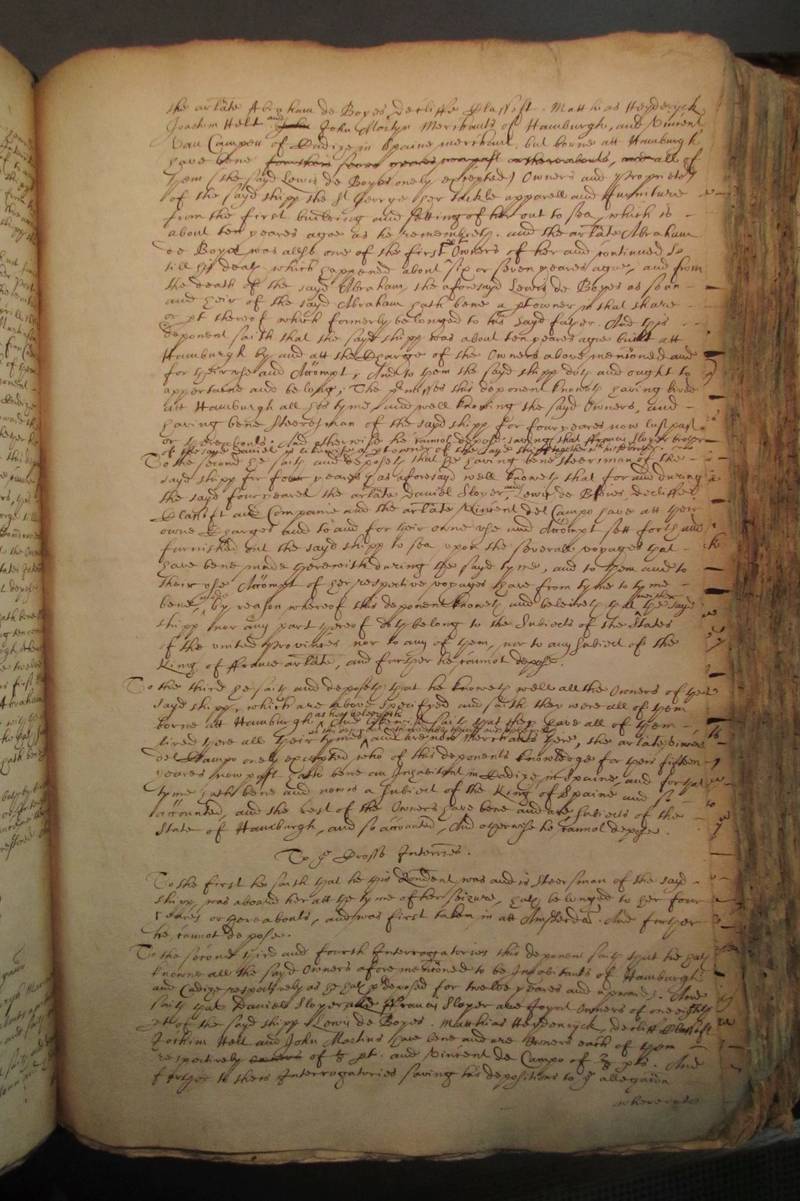 the arlate Abraham de Boyes, derliffe Plassoft. Matthias Heyderyck
Joachim Helt and John Martyn Merchants of Hamburgh, and Vincent
Van Campen of Cadize in Spaine merchant, but borne att Hamburgh
have bene all of
them (the sayd Lewis de Boyes onely excepted) Owners and Proprietors
of the sayd shipp the St George her tackle apparell and furniture
from the first building and setting of her out to sea, which is
about ten yeares agoe as he remembreth. and the arlate Abraham
de Boyes was allso one of the first Owners of her and continued so
till his death which happened about six or seven yeares agoe, and from
the death of the sayd Abraham the aforesayd Lewis de Boyes as sonn
and heir of the sayd Abraham hath bene a ptowner in that share
or pt thereof which formerly belonged to his sayd father. And this
deponent saith that the sayd shipp was about ten yeares agoe built att
Hamburgh by and att the Charge of the Owners above mentioned and
for their use and Accompt, And to them the sayd shipp doth and ought to
appertaine and belong, The premisses this deponent knoweth having lived
att Hamburgh all his tyme and well knowing the sayd Owners, and
having bene steeresman of the sayd shipp for four yeares now last past
or thereabouts. And otherwise he cannot depose saving that Francis Sloyer brother
of the sayd Daniel is likewise a ptowner of the sayd shipp
To the second he saith and deposeth that he having bene steersman of the
sayd shipp for four yeares as aforesayd well knoweth that for and during
the sayd four yeares the arlate Daniel Sloyer, and Lewis de Boyes, derliffe
Plassift and Companie and the arlate Vincent del Campo have att their
owne Charges and to and for their owne use and Accompt sett forth and
furnished out the sayd shipp to sea upon the severall voyages that
have bene made therewith during the sayd tyme, and to them and to
their use Accompt of her respective voyages have from tyme to tyme
bene by reason whereof this deponent knoweth and beleiveth that neither the sayd
shipp nor any part thereof doth belong to the Subiects of the States
of the united Provinces nor to any of them, nor to any Subiect of the
King of France arlate, and further he cannot depose.
To the third he saith and deposeth that he knoweth well all the Owners of the
sayd shipp, which are above specifyed and saith they were all of them
borne att Hamburgh as hee beleeveth And further he saith that they have all of them
lived there all their tymes and are Merchants there, the arlate Vincent
del Campo onely excepted who of this deponents knowledge for theis fifteen
yeares now past hath bene an Inhabitant in Cadize in Spaine, and for that
tyme hath bene and now is a Subiect of the King of Spaine and so
accounted, and the rest of the Owners have bene and are Subiects of the
State of Hamburgh, and so accounted, And otherwise he cannot depose.
To ye Crosse Interries.
To the first he saith that he this Rendent was and is steersman of the sayd
shipp, was aboard her att the tyme of her seizure, hath belonged to her four
yeares or thereabouts, and was first taken in att Amsterdam. And further
he cannot depose.
To the second third and fourth Interrogatories this deponent saith that he hath
knowne all the sayd Owners aforementioned to be Inhabitants of Hamburgh
and Cadize respectively as is predeposed for twelve yeares and upwards. And
saith that Daniel Sloyer and Francis Sloyer are Joynt Owners of one eighth
pt of the sayd shipp Lewis de Boyes. Matthias Heyderryck, derliff Plassift
Jochim Helt and John Martins have bene and are Owners each of them
respectively of 1/8 pt. and Vincent de Campo of 2/8 pts. And
further to theis Interrogatories saving his depositions to ye allegation
whereunto